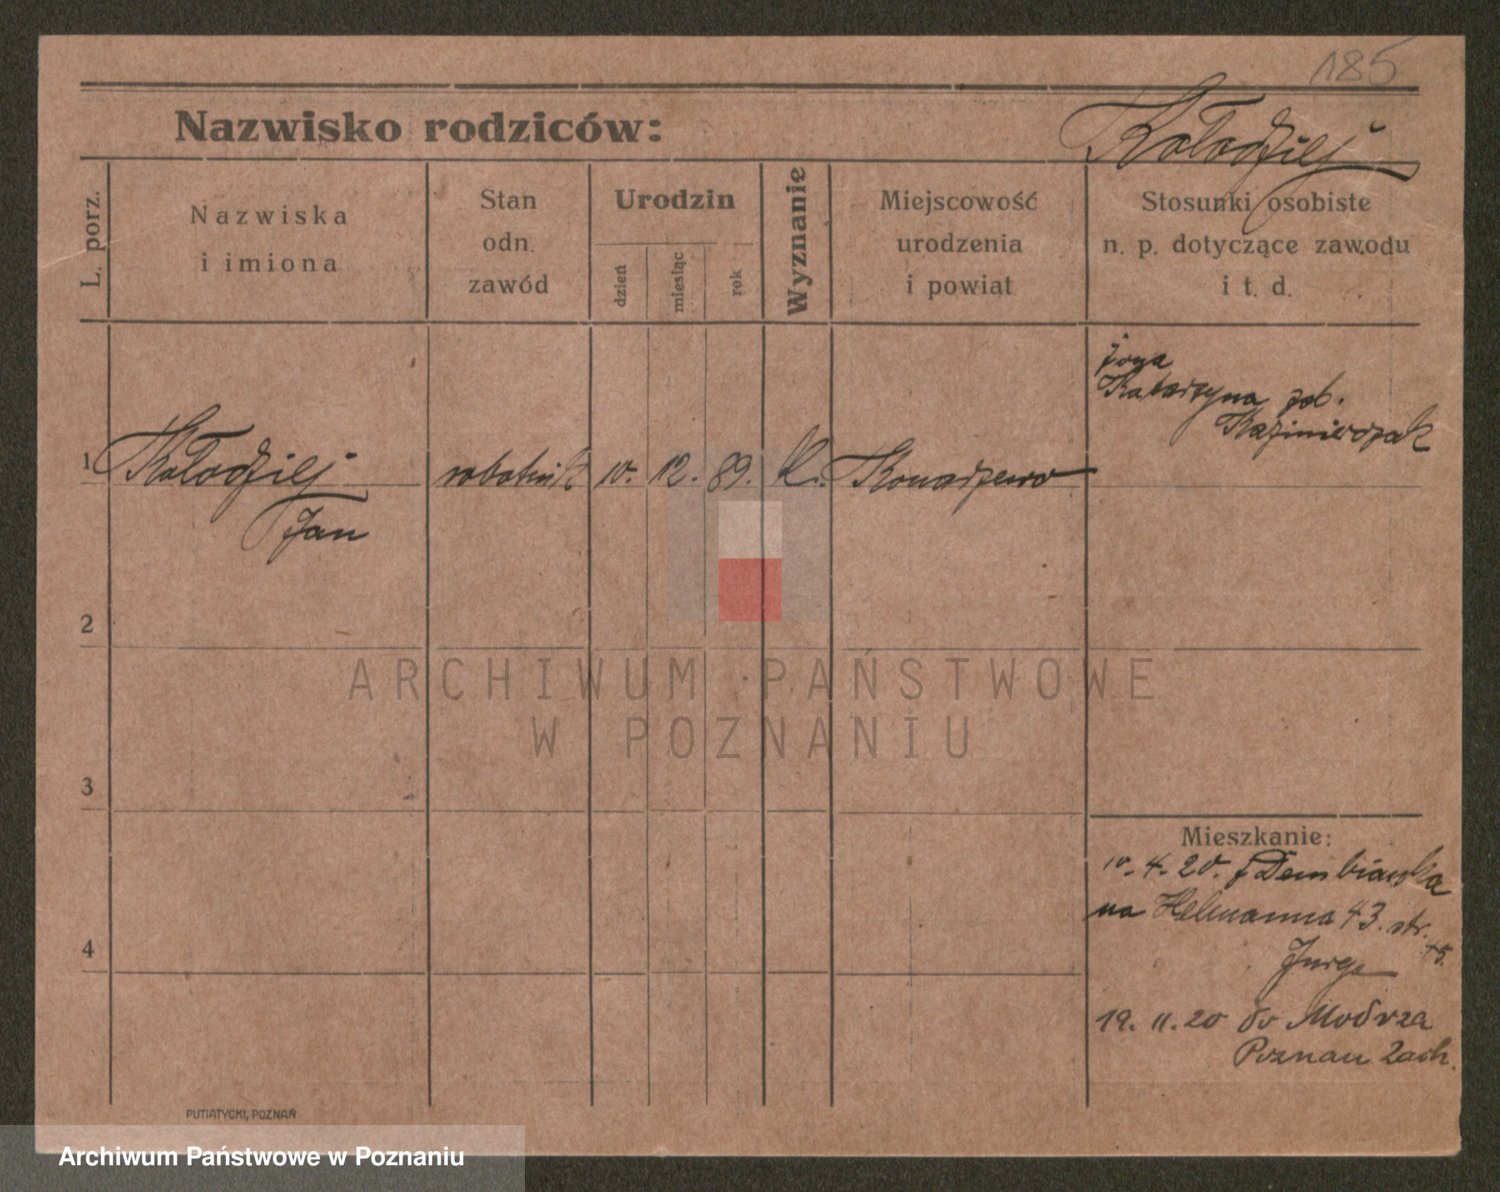 185
Nazwisko rodziców: Kołodziej
L. porz.
Nazwiska
i imiona
Stan
odn.
zawód
Urodzin
dzień
miesiąc
rok
Wyznanie
Miejscowość
urodzenia
i powiat
Stosunki osobiste
n. p. dotyczące zawodu
i t. d.
1 Kołodziej robotnik 10. 12. 89. k. Konarzewo
Jan
żona
Katarzyna
Kazimierczak
2
3
4
Mieszkanie:
10. 4. 20.
na 43. str.
Jurga
19. 11. 20 do Modrza
Poznań Zach.
PUTIATYCKI, POZNAŃ
ARCHIWUM PAŃSTWOWE
W POZNANIU
Archiwum Państwowe w Poznaniu